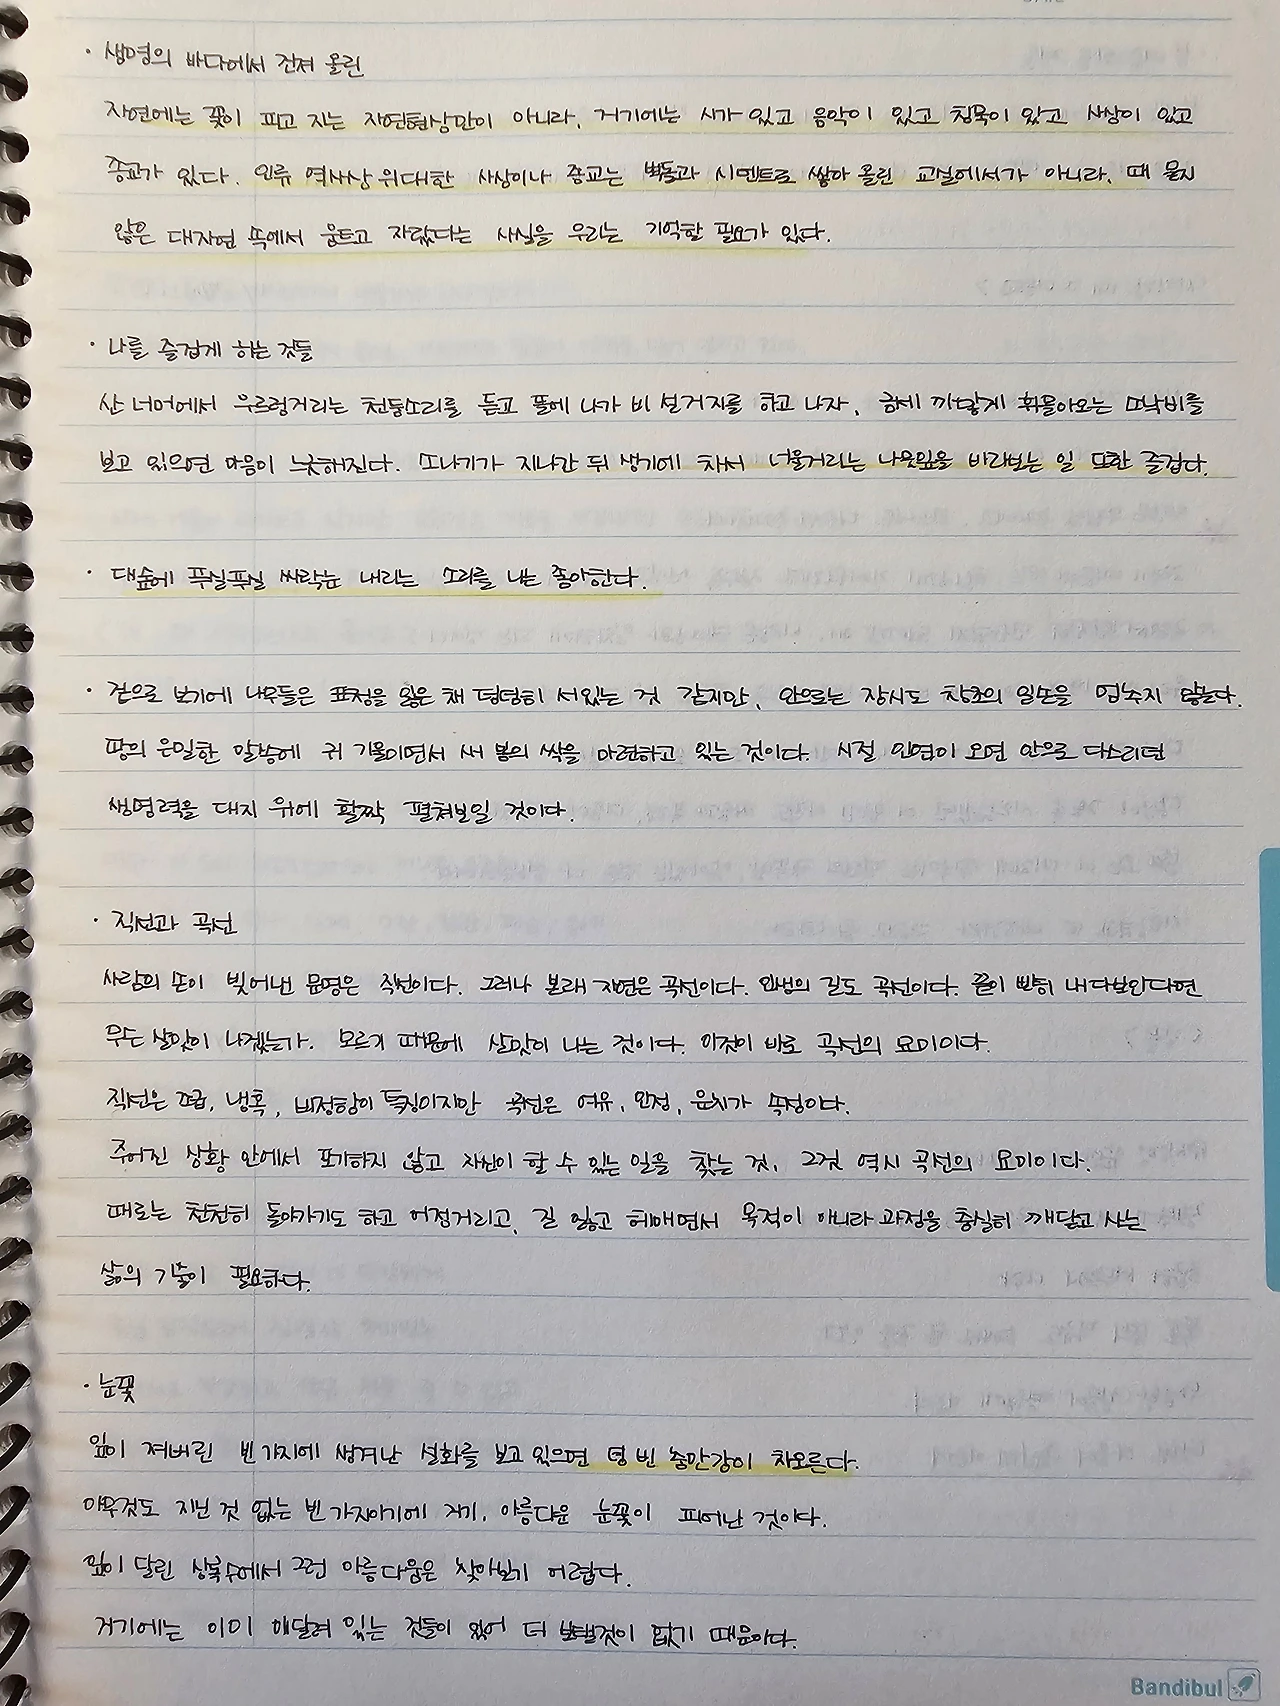 · 생명의 바다에서 건져 올린
자연에는 꽃이 피고 지는 자연현상만이 아니라, 거기에는 시가 있고 음악이 있고 침묵이 있고 사상이 있고
종교가 있다. 인류 역사상 위대한 사상이나 종교는 벽돌과 시멘트로 쌓아 올린 교실에서가 아니라, 때 묻지
않은 대자연 속에서 움트고 자랐다는 사실을 우리는 기억할 필요가 있다.
· 나를 즐겁게 하는 것들
산 너머에서 우르렁거리는 천둥소리를 듣고 뜰에 나가 비 설거지를 하고 나자, 금세 까맣게 휘몰아오는 먹비를
보고 있으면 마음이 느긋해진다. 소나기가 지나간 뒤 생기에 차서 너울거리는 나뭇잎을 바라보는 일 또한 즐겁다.
· 대숲에 푸실푸실 싸락눈 내리는 소리를 나는 좋아한다.
· 겉으로 보기에 나무들은 표정을 잃은 채 덤덤히 서있는 것 같지만, 안으로는 잠시도 창조의 일손을 멈추지 않는다.
땅의 은밀한 말씀에 귀 기울이면서 새 봄의 싹을 마련하고 있는 것이다. 시절 인연이 오면 안으로 다스리던
생명력을 대지 위에 활짝 펼쳐보일 것이다.
· 직선과 곡선
사람의 손이 빚어낸 문명은 직선이다. 그러나 본래 자연은 곡선이다. 인생의 길도 곡선이다. 끝이 빤히 내다보인다면
무슨 살맛이 나겠는가. 모르기 때문에 살맛이 나는 것이다. 이것이 바로 곡선의 묘미이다.
직선은 조급, 냉혹, 비정함이 특징이지만 곡선은 여유, 인정, 운치가 속성이다.
주어진 상황 안에서 포기하지 않고 자신이 할 수 있는 일을 찾는 것, 그것 역시 곡선의 묘미이다.
때로는 천천히 돌아가기도 하고 어정거리고, 길 잃고 헤매면서 목적이 아니라 과정을 충실히 깨닫고 사는
삶의 기술이 필요하다.
· 눈꽃
잎이 져버린 빈 가지에 생겨난 설화를 보고 있으면 텅 빈 충만감이 차오른다.
아무것도 지닌 것 없는 빈 가지이기에 거기, 아름다운 눈꽃이 피어난 것이다.
잎이 달린 상록수에서 그런 아름다움은 찾아보기 어렵다.
거기에는 이미 매달려 있는 것들이 있어 더 보탤것이 없기 때문이다.
Bandibul